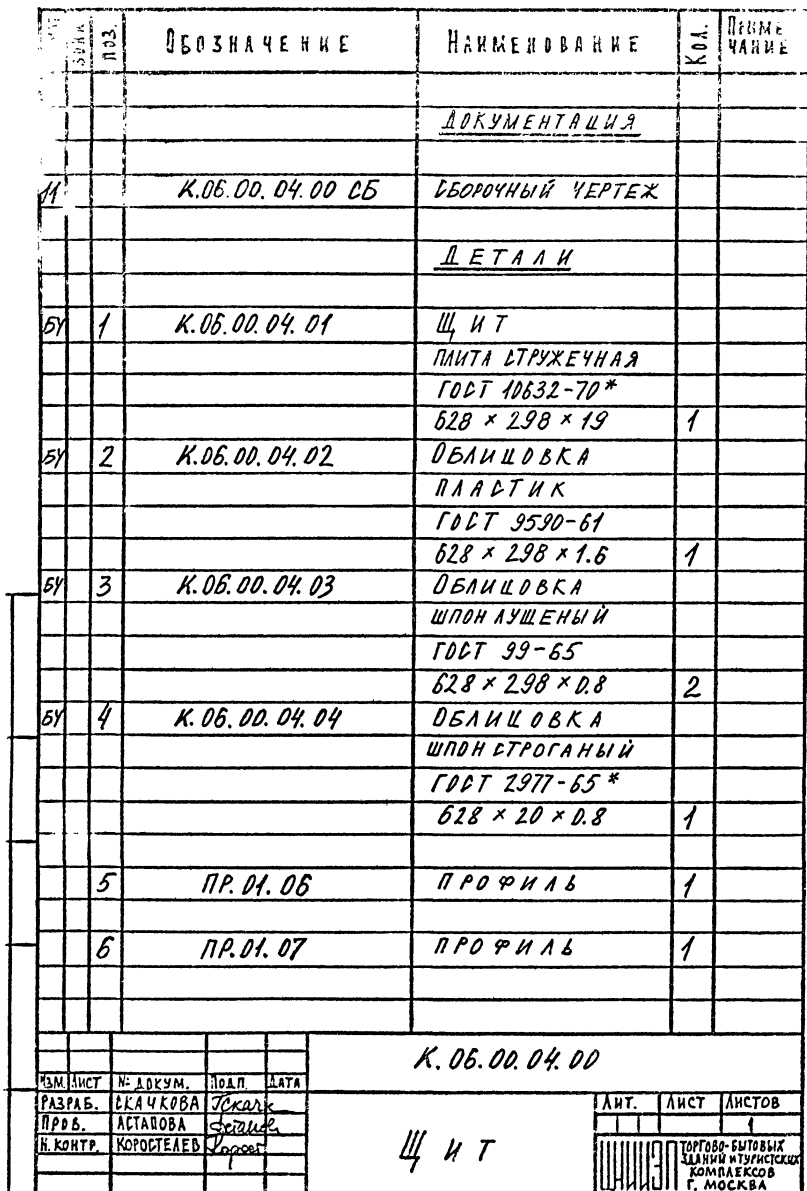 ЗОНА ПОЗ. ОБОЗНАЧЕНИЕ НАИМЕНОВАНИЕ КОЛ. ПРИМЕЧАНИЕ
ДОКУМЕНТАЦИЯ
К.06.00.04.00 СБ СБОРОЧНЫЙ ЧЕРТЕЖ
ДЕТАЛИ
БЧ 1 К.06.00.04.01 ЩИТ
ПЛИТА СТРУЖЕЧНАЯ
ГОСТ 10632-70*
628 × 298 × 19 1
БЧ 2 К.06.00.04.02 ОБЛИЦОВКА
ПЛАСТИК
ГОСТ 9590-61
628 × 298 × 1.6 1
БЧ 3 К.06.00.04.03 ОБЛИЦОВКА
ШПОН ЛУЩЕНЫЙ
ГОСТ 99-65
628 × 298 × 0.8 2
БЧ 4 К.06.00.04.04 ОБЛИЦОВКА
ШПОН СТРОГАНЫЙ
ГОСТ 2977-65*
628 × 20 × 0.8 1
5 ПР.01.06 ПРОФИЛЬ 1
6 ПР.01.07 ПРОФИЛЬ 1
К.06.00.04.00
ИЗМ. ЛИСТ № ДОКУМ. ПОДП. ДАТА
РАЗРАБ. СКАЧКОВА
ПРОВ. АСТАПОВА
Н.КОНТР. КОРОСТЕЛЕВ
ЩИТ
ЛИТ. ЛИСТ ЛИСТОВ
1
ТОРГОВО-БЫТОВЫХ
ЗДАНИЙ И ТУРИСТСКИХ
КОМПЛЕКСОВ
Г. МОСКВА